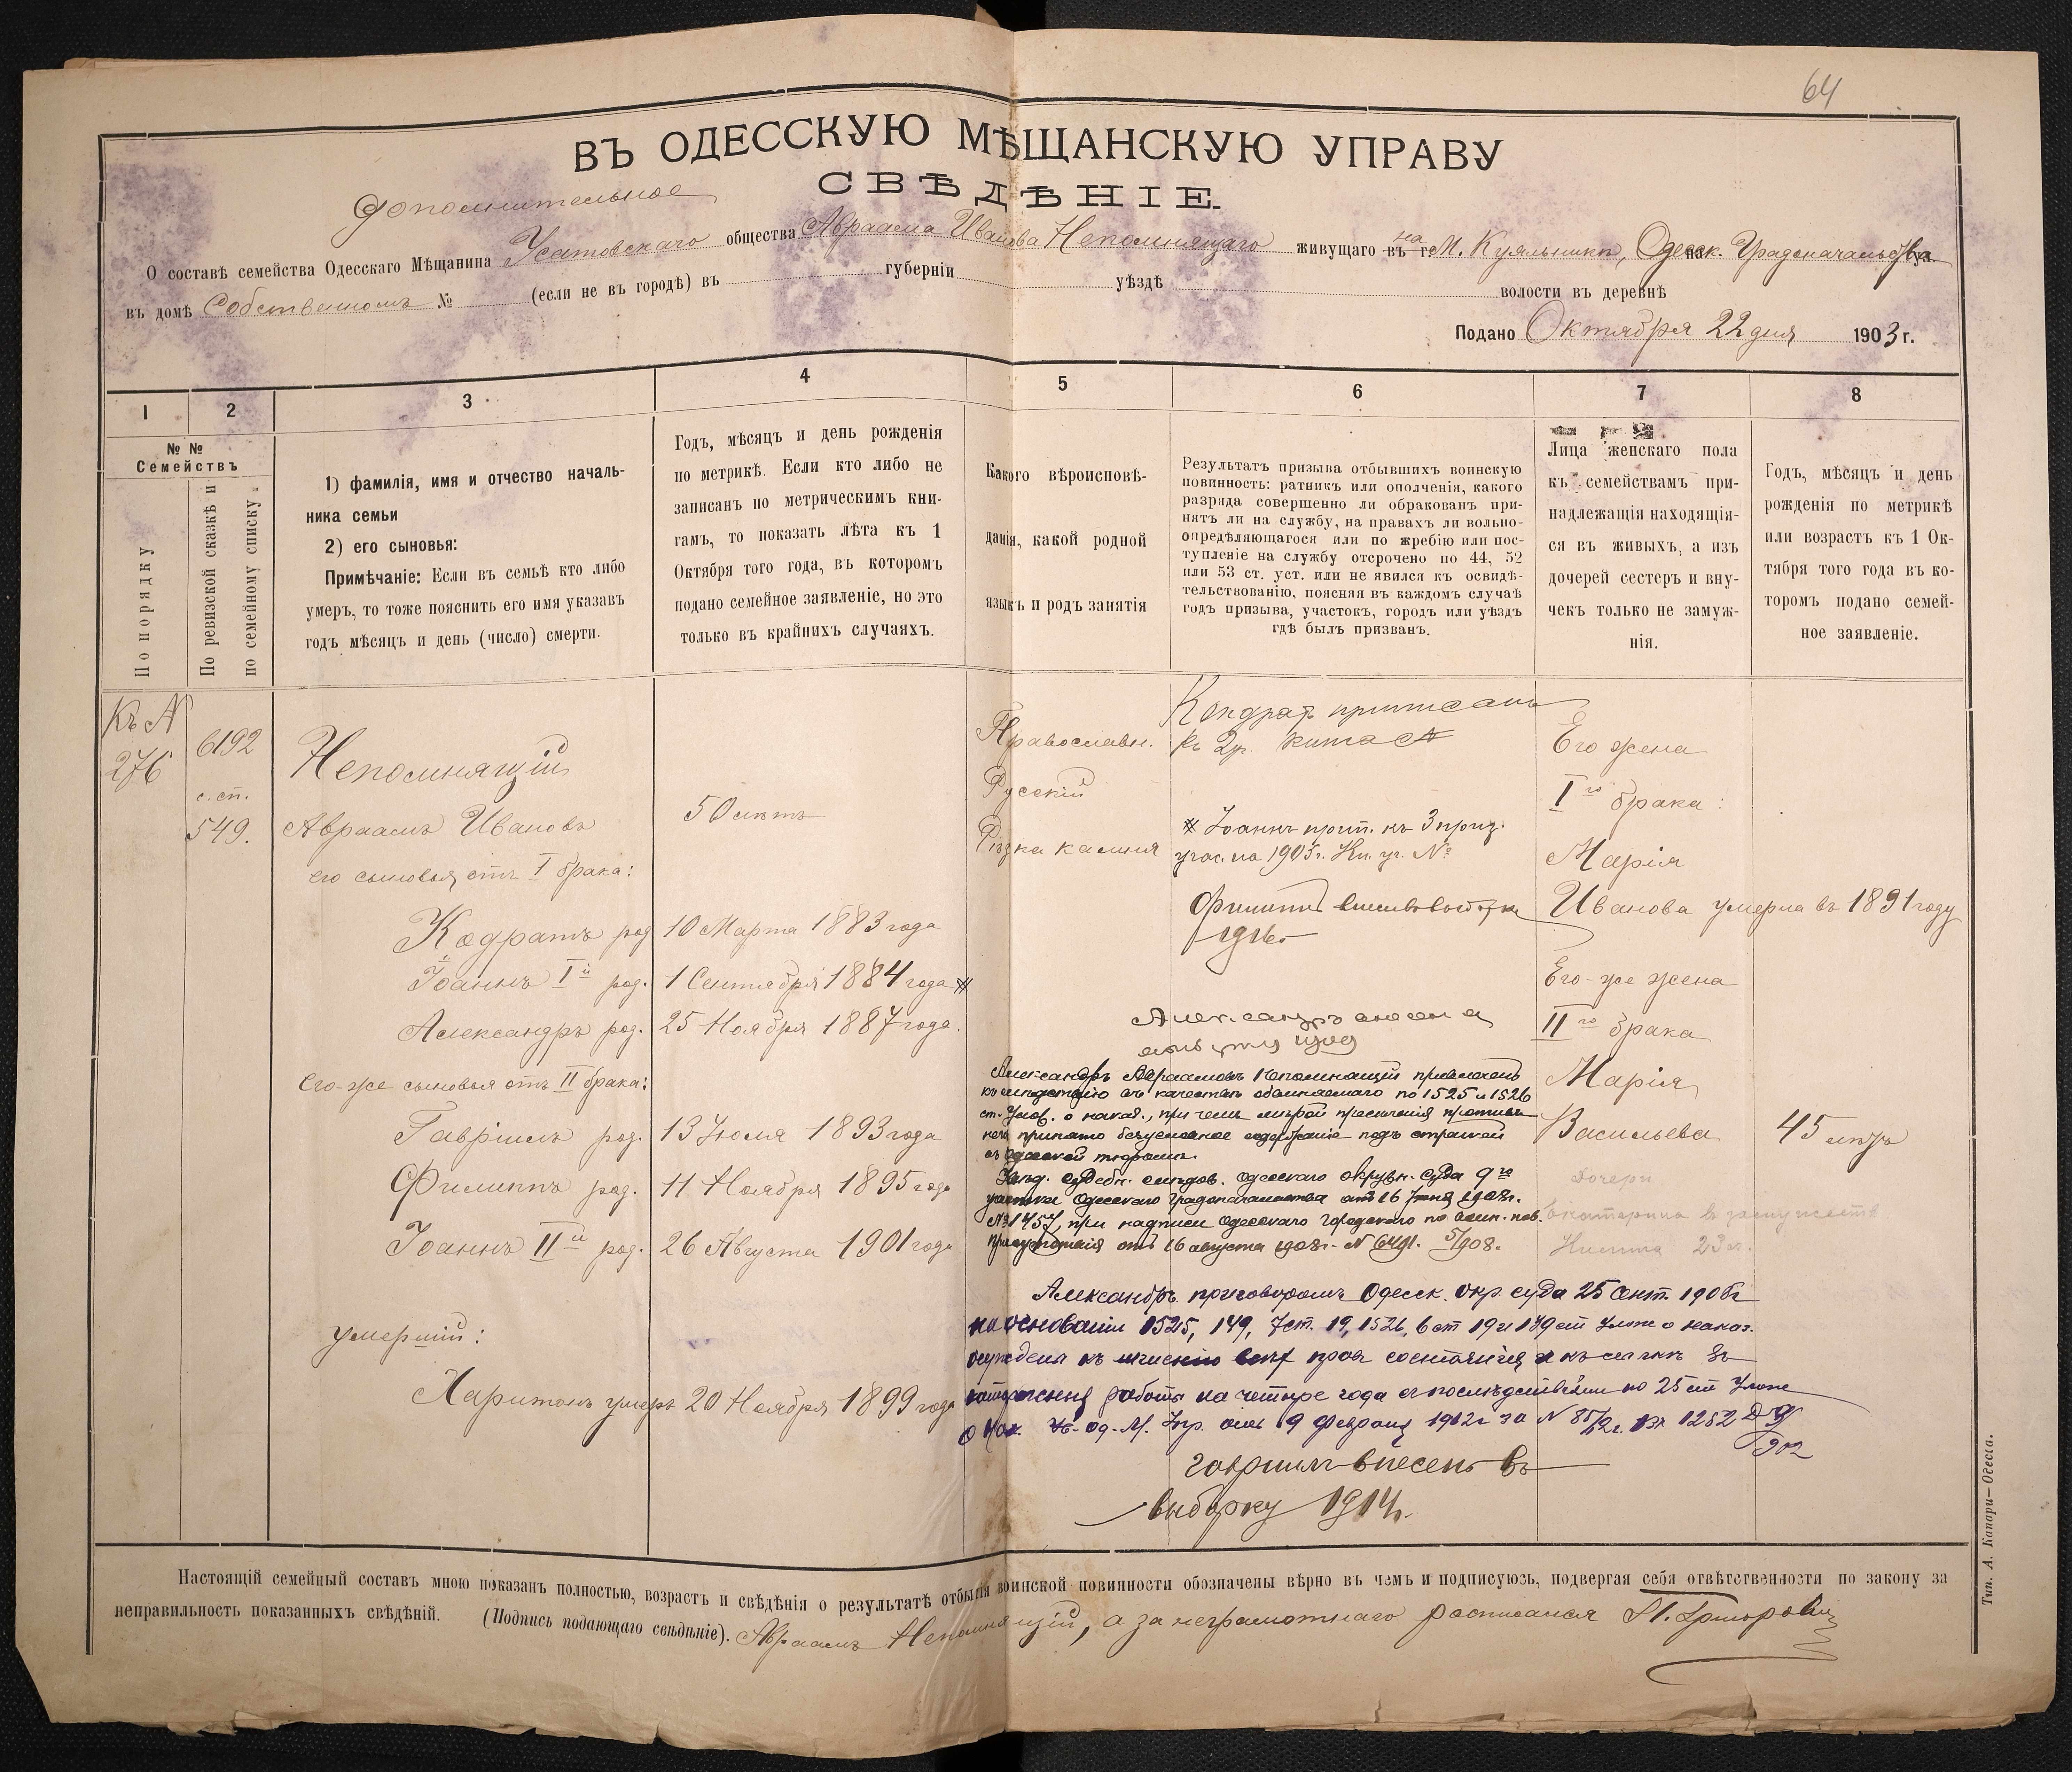 64
ВЪ ОДЕССКУЮ МѢЩАНСКУЮ УПРАВУ
СВѢДѢНІЕ.
Дополнительное
О составѣ семейства Одесскаго Мѣщанина Усатовскаго общества Авраама Иванова Непомнящаго живущаго въ на г. М. Куяльникѣ, Одесск. Градоначальства
въ домѣ Собственномъ № (если не въ городѣ) въ губерніи уѣздѣ волости въ деревнѣ
Подано Октября 22 дня 1903 г.
1
2
3
4
5
6
7
8
№ № Семействъ
По порядку
По ревизской сказкѣ и
по семейному списку.
1) фамилія, имя и отчество началь-
ника семьи
2) его сыновья:
Примѣчаніе: Если въ семьѣ кто либо
умеръ, то тоже пояснить его имя указавъ
годъ мѣсяцъ и день (число) смерти.
Годъ, мѣсяцъ и день рожденія
по метрикѣ. Если кто либо не
записанъ по метрическимъ кни-
гамъ, то показать лѣта къ 1
Октября того года, въ которомъ
подано семейное заявленіе, но это
только въ крайнихъ случаяхъ.
Какого вѣроисповѣ-
данія, какой родной
языкъ и родъ занятія
Результатъ призыва отбывшихъ воинскую
повинность: ратникъ или ополченія, какого
разряда совершенно ли обракованъ при-
нятъ ли на службу, на правахъ ли вольно-
опредѣляющагося или по жребію или пос-
тупленіе на службу отсрочено по 44, 52
или 53 ст. уст. или не явился къ освидѣ-
тельствованію, поясняя въ каждомъ случаѣ
годъ призыва, участокъ, городъ или уѣздъ
гдѣ былъ призванъ.
Лица женскаго пола
къ семействамъ при-
надлежащія находящія-
ся въ живыхъ, а изъ
дочерей сестеръ и вну-
чекъ только не замуж-
нія.
Годъ, мѣсяцъ и день
рожденія по метрикѣ
или возрастъ къ 1 Ок-
тября того года въ ко-
торомъ подано семей-
ное заявленіе.
Къ №
276
6192
с. сп.
549.
Непомнящій
Авраамъ Ивановъ
его сыновья отъ I брака:
Кодратъ род.
Іоаннъ Iй род.
Александръ род.
его-же сыновья отъ II брака:
Гавріилъ род.
Филиппъ род.
Іоаннъ IIй род.
умершій:
Харитонъ умеръ 20 Ноября 1899 года
50 лѣтъ
10 Марта 1883 года
1 Сентября 1884 года
25 Ноября 1887 года.
13 Іюля 1893 года
11 Ноября 1895 года
26 Августа 1901 года
Православн.
Русскій
Рѣзка камня
Кондратъ приписанъ
къ 2 уч.
Іоаннъ прип. къ 3 приз.
участ. на 1905 г. Кн. уч. №
Филиппъ
1916 г.
Александръ
Александръ Авраамовъ Непомнящій привлеченъ
къ слѣдствію въ качествѣ обвиняемаго по 1525 и 1526
ст. Улож. о наказ., при чемъ мѣрой пресѣченія противъ
него принято безусловное содержаніе подъ стражей
въ Одесской тюрьмѣ.
Увѣд. судебн. слѣдов. Одесскаго окружн. суда 9го
участка Одесскаго Градоначальства отъ 16 1908 г.
№ 1457, при надписи Одесскаго городского по воин. пов.
присутствія отъ 16 августа 1908 г. № 6491. 5/908.
Александръ приговоромъ Одесск. окр. суда 25 Сент. 1908 г.
на основаніи 1525, 149, 7 ст. 19, 1526, 6 ст 19 и 149 ст Улож о наказ.
осужденъ къ лишенію всѣхъ правъ состоянія и къ ссылкѣ въ
каторжныя работы на четыре года съ послѣдствіями по 25 ст Улож
о Нак. Од. М. Упр. отъ 9 Февраля 1912 г за № 1252
Гавріилъ внесенъ въ
выборку 1914 г.
Его жена
Iго брака:
Марія
Иванова умерла въ 1891 году
Его-же жена
IIго брака
Марія
Васильева 45 лѣтъ
Дочери
Екатерина въ замужествѣ
23 л.
Настоящій семейный составъ мною показанъ полностью, возрастъ и свѣдѣнія о результатѣ отбытія воинской повинности обозначены вѣрно въ чемъ и подписуюсь, подвергая себя отвѣтственности по закону за
неправильность показанныхъ свѣдѣній. (Подпись подающаго свѣдѣніе). Авраамъ Непомнящій, а за неграмотнаго росписался
Тип. А. Капари—Одесса.